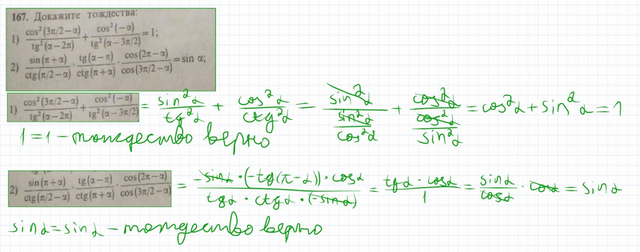 167. Докажите тождества:
1) cos²(3π/2−α)/tg²(α−2π) + cos²(−α)/tg²(α−3π/2) = 1;
2) sin(π+α)/ctg(π/2−α) · tg(α−π)/ctg(π+α) · cos(2π−α)/cos(3π/2−α) = sin α;
1) cos²(3π/2−α)/tg²(α−2π) + cos²(−α)/tg²(α−3π/2) = sin²α/tg²α + cos²α/ctg²α = sin²α/(sin²α/cos²α) + cos²α/(cos²α/sin²α) = cos²α + sin²α = 1
1 = 1 - тождество верно
2) sin(π+α)/ctg(π/2−α) · tg(α−π)/ctg(π+α) · cos(2π−α)/cos(3π/2−α) = −sinα·(−tg(π−α))·cosα/(tgα·ctgα·(−sinα)) = tgα·cosα/1 = sinα/cosα · cosα = sinα
sinα = sinα - тождество верно